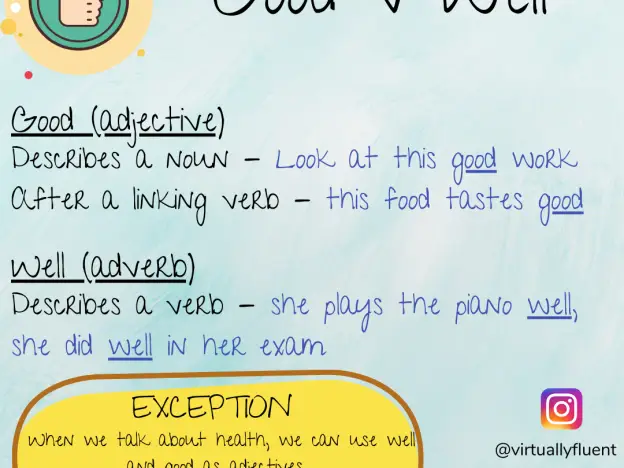 Good v Well
Good (adjective)
Describes a noun – Look at this good work
After a linking verb – this food tastes good
Well (adverb)
Describes a verb – she plays the piano well,
she did well in her exam
EXCEPTION
When we talk about health, we can use well
and good as adjectives
@virtuallyfluent